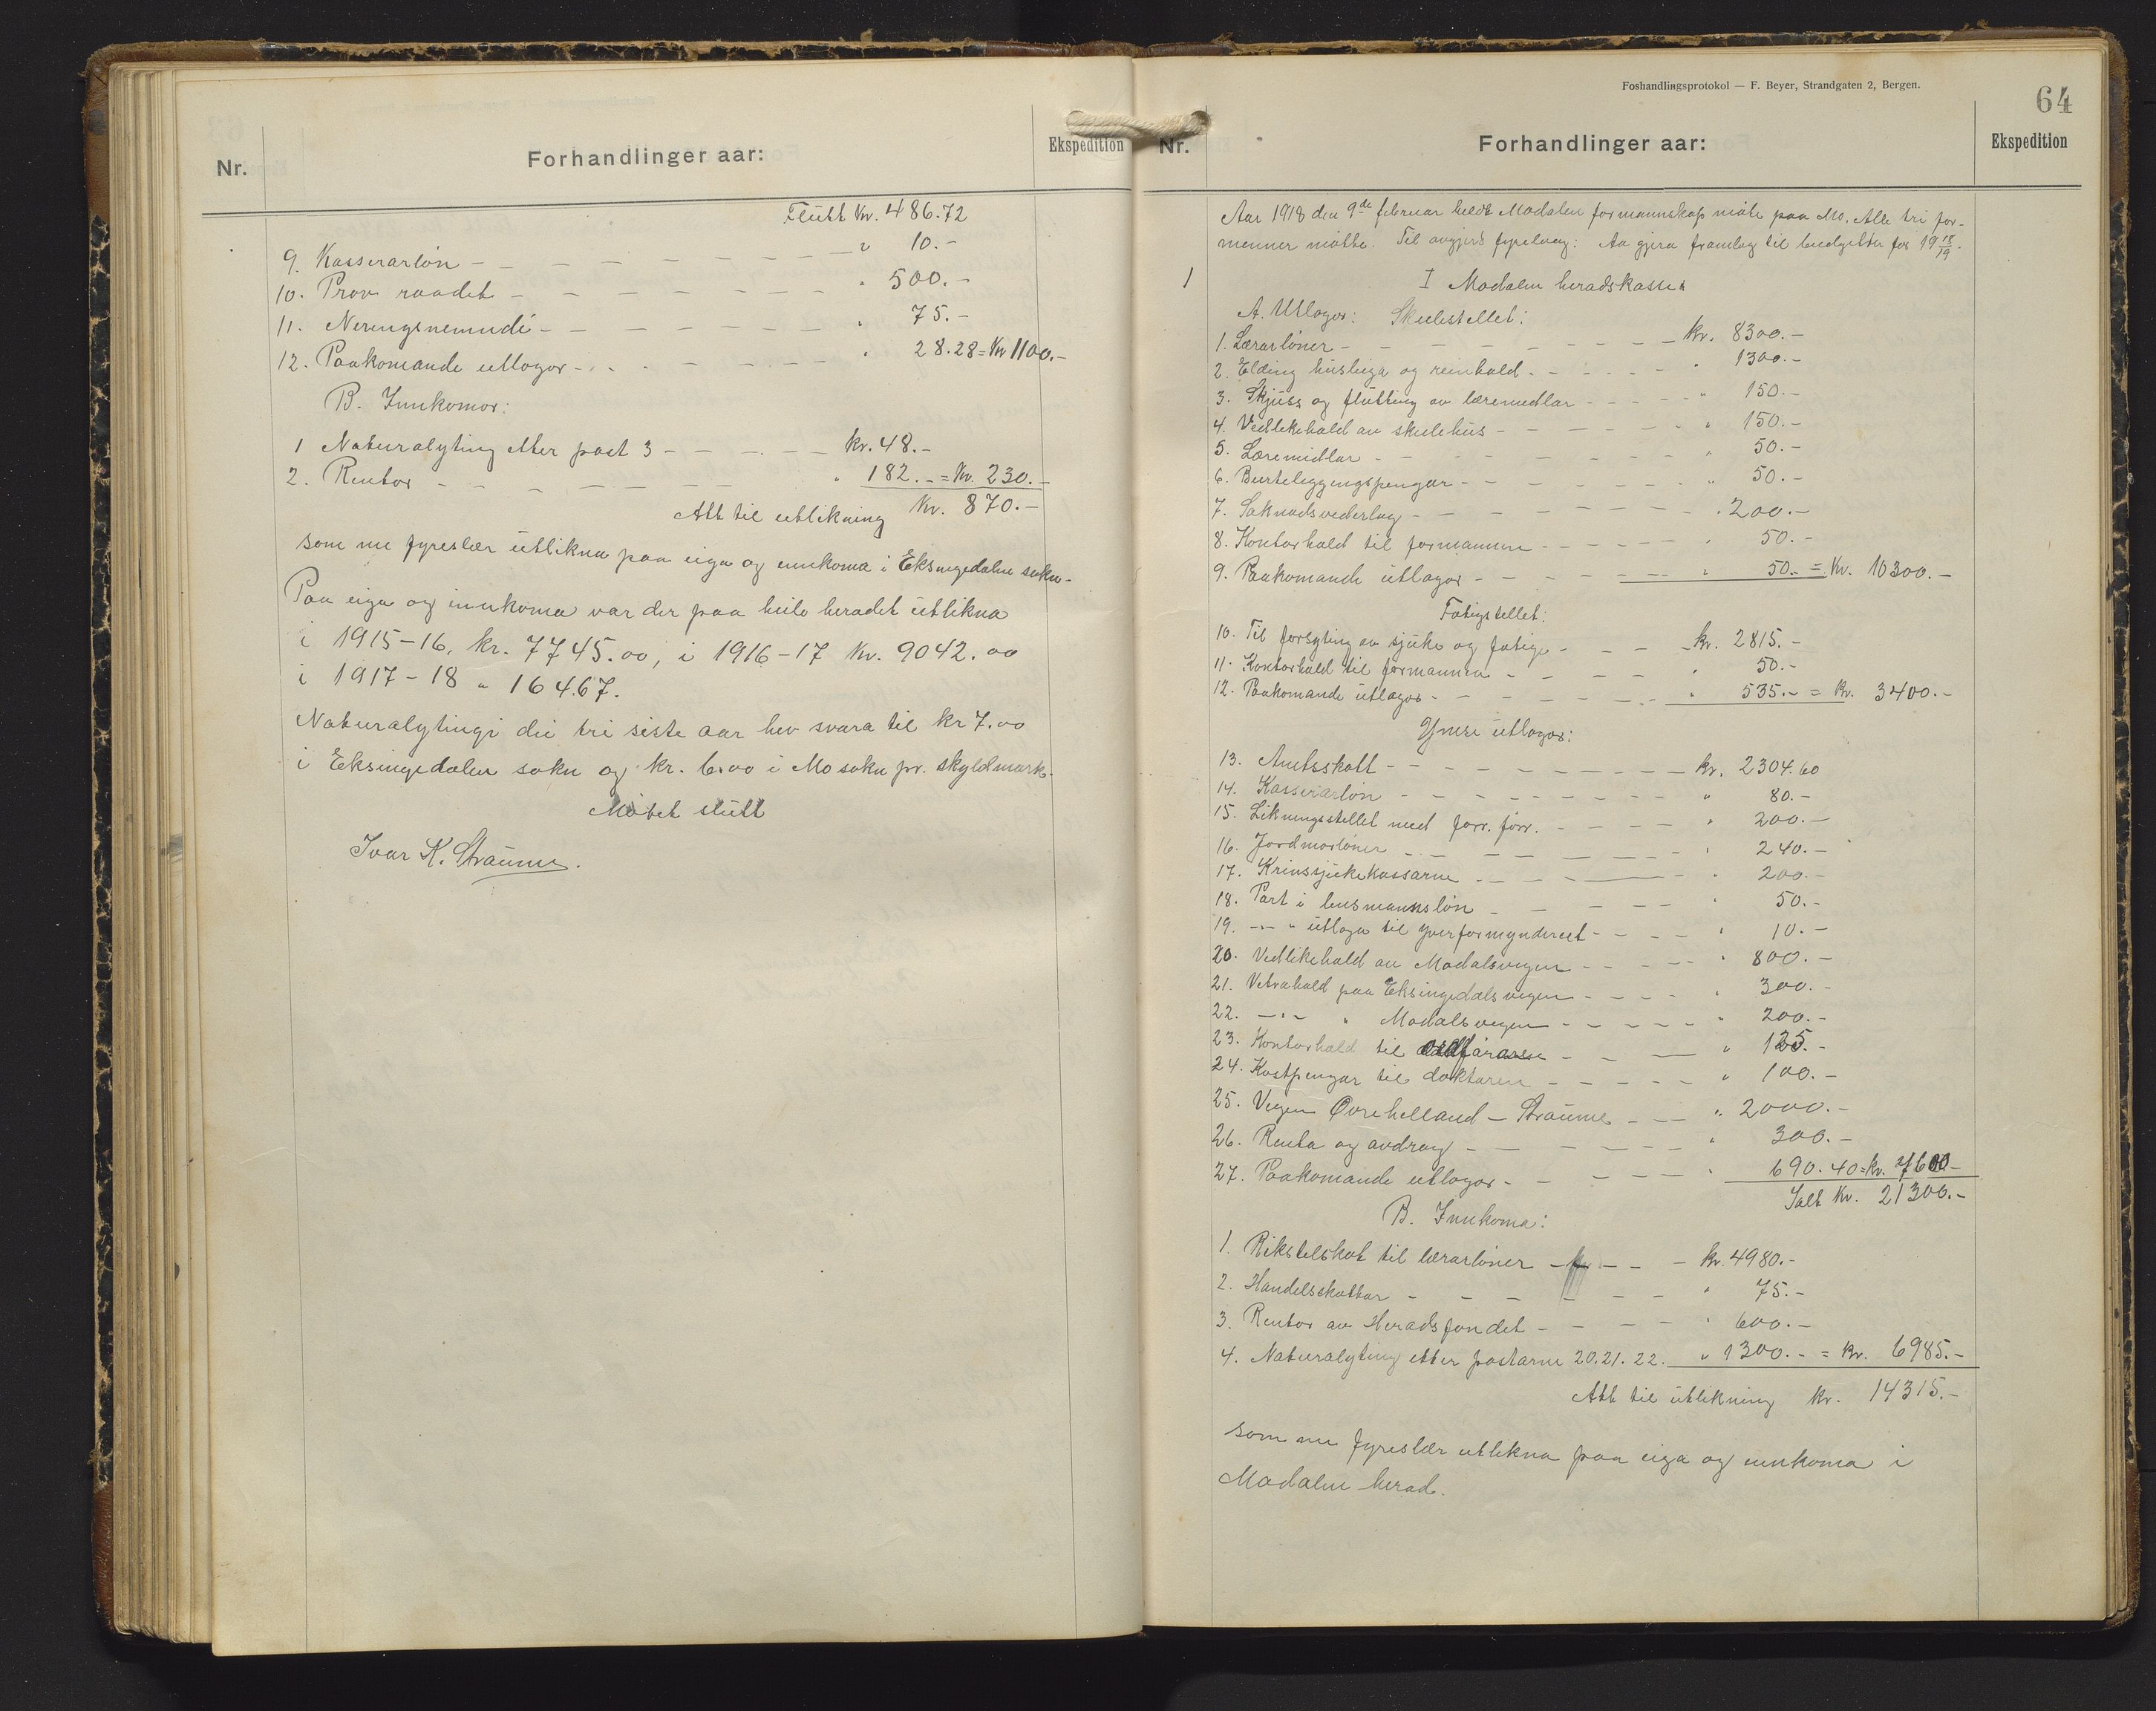 Nr.
Forhandlinger aar:
Ekspedition
Flutt Kr. 486.72
9. Kasserarløn - - - - - - - - " 10.-
10. Prov raadet - - - - - - - " 500.-
11. Neringsnemndi - - - - - - - " 75.-
12. Paakomande utlogor - - - - - - " 28.28 = Kr 1100.-
B. Innkomor:
1 Naturalyting etter post 3 - - - - - kr. 48.-
2. Rentor - - - - - - - " 182.- = Kr. 230.-
Att til utlikning Kr. 870.-
som me fyreslær utlikna paa eiga og innkoma i Eksingedalen sokn.
Paa eiga og innkoma var der paa heile heradet utlikna
i 1915-16, kr. 7745.00, i 1916-17 Kr. 9042.00
i 1917-18 " 16467.
Naturalytingi dei tri siste aar hev svara til kr 7.00
i Eksingedalen sokn og kr. 6.00 i Mo sokn pr. skyldmark.
Møtet slutt
Ivar K. Straume.
Foshandlingsprotokol — F. Beyer, Strandgaten 2, Bergen.
64
Nr.
Forhandlinger aar:
Ekspedition
Aar 1918 den 9de februar heldt Modalen formannskap møte paa Mo. Alle tri for-
menner møtte. Til avgjerd fyrelaag: Aa gjera framlag til budgetter for 19 18/19.
1 I Modalen heradskassa
A. Utlogor: Skulestellet:
1. Lærarløner - - - - - - - - kr. 8300.-
2. Elding husleiga og reinhald - - - - - " 1300.-
3. Skjuss og flutting av læremidlar - - - - - " 150.-
4. Vedlikehald av skulehus - - - - - - " 150.-
5. Læremidlar - - - - - - - - " 50.-
6. Burteleggingspengar - - - - - - - " 50.-
7. Saknadsvederlag - - - - - - - - " 200.-
8. Kontorhald til formannen - - - - - " 50.-
9. Paakomande utlogor - - - - - - - " 50.- = Kr. 10300.-
Fatigstellet:
10. Til forsyting av sjuke og fatige - - - - kr. 2815.-
11. Kontorhald til formannen - - - - - " 50.-
12. Paakomande utlogor - - - - - - " 535.- = Kr. 3400.-
Ymse utlogor:
13. Amtsskatt - - - - - - - - kr. 2304.60
14. Kasserarløn - - - - - - - - " 80.-
15. Likningsstellet med forr. forr. - - - - " 200.-
16. Jordmorløner - - - - - - - " 240.-
17. Krinssjukekassarne - - - - - - " 200.-
18. Part i lensmannsløn - - - - - - " 50.-
19. -"- " utloga til yverformyndereet - - - - " 10.-
20. Vedlikehald av Modalsvegen - - - - - " 800.-
21. Vetrahald paa Eksingedalsvegen - - - - " 300.-
22. -"- " Modalsvegen - - - - - " 200.-
23. Kontorhald til ordføraren - - - " 125.-
24. Kostpengar til doktaren - - - - - " 100.-
25. Vegen Øvrehelland - Straume - - - " 2000.-
26. Renta og avdrag - - - - - - " 300.-
27. Paakomande utlogor - - - - - - " 690.40 = Kr. 7600-
Ialt Kr. 21300.-
B. Innkoma:
1. Rikstilskot til lærarløner - - - - kr. 4980.-
2. Handelsskattar - - - - - - - " 75.-
3. Rentor av Heradsfondet - - - - - " 600.-
4. Naturalyting etter postarne 20.21.22. " 1300.- = Kr. 6985.-
Att til utlikning kr. 14315.-
som me fyreslær utlikna paa eiga og innkoma i
Modalen herad.